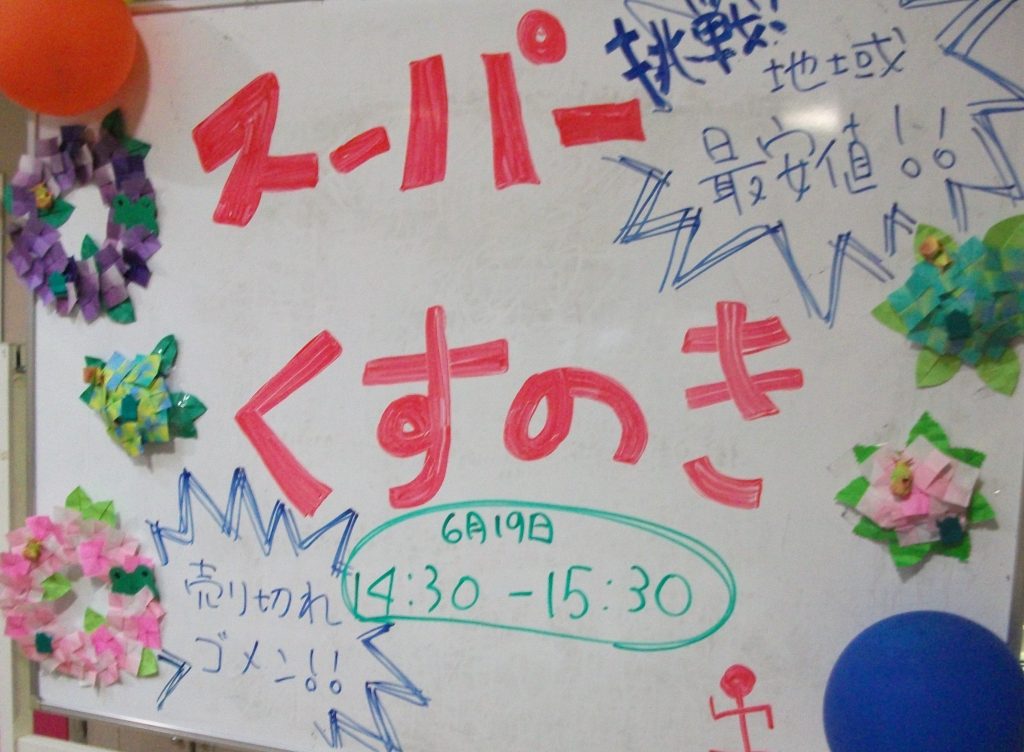 スーパー
挑戦!
地域
最安値!!
くすのき
6月19日
14:30-15:30
売り切れ
ゴメン!!